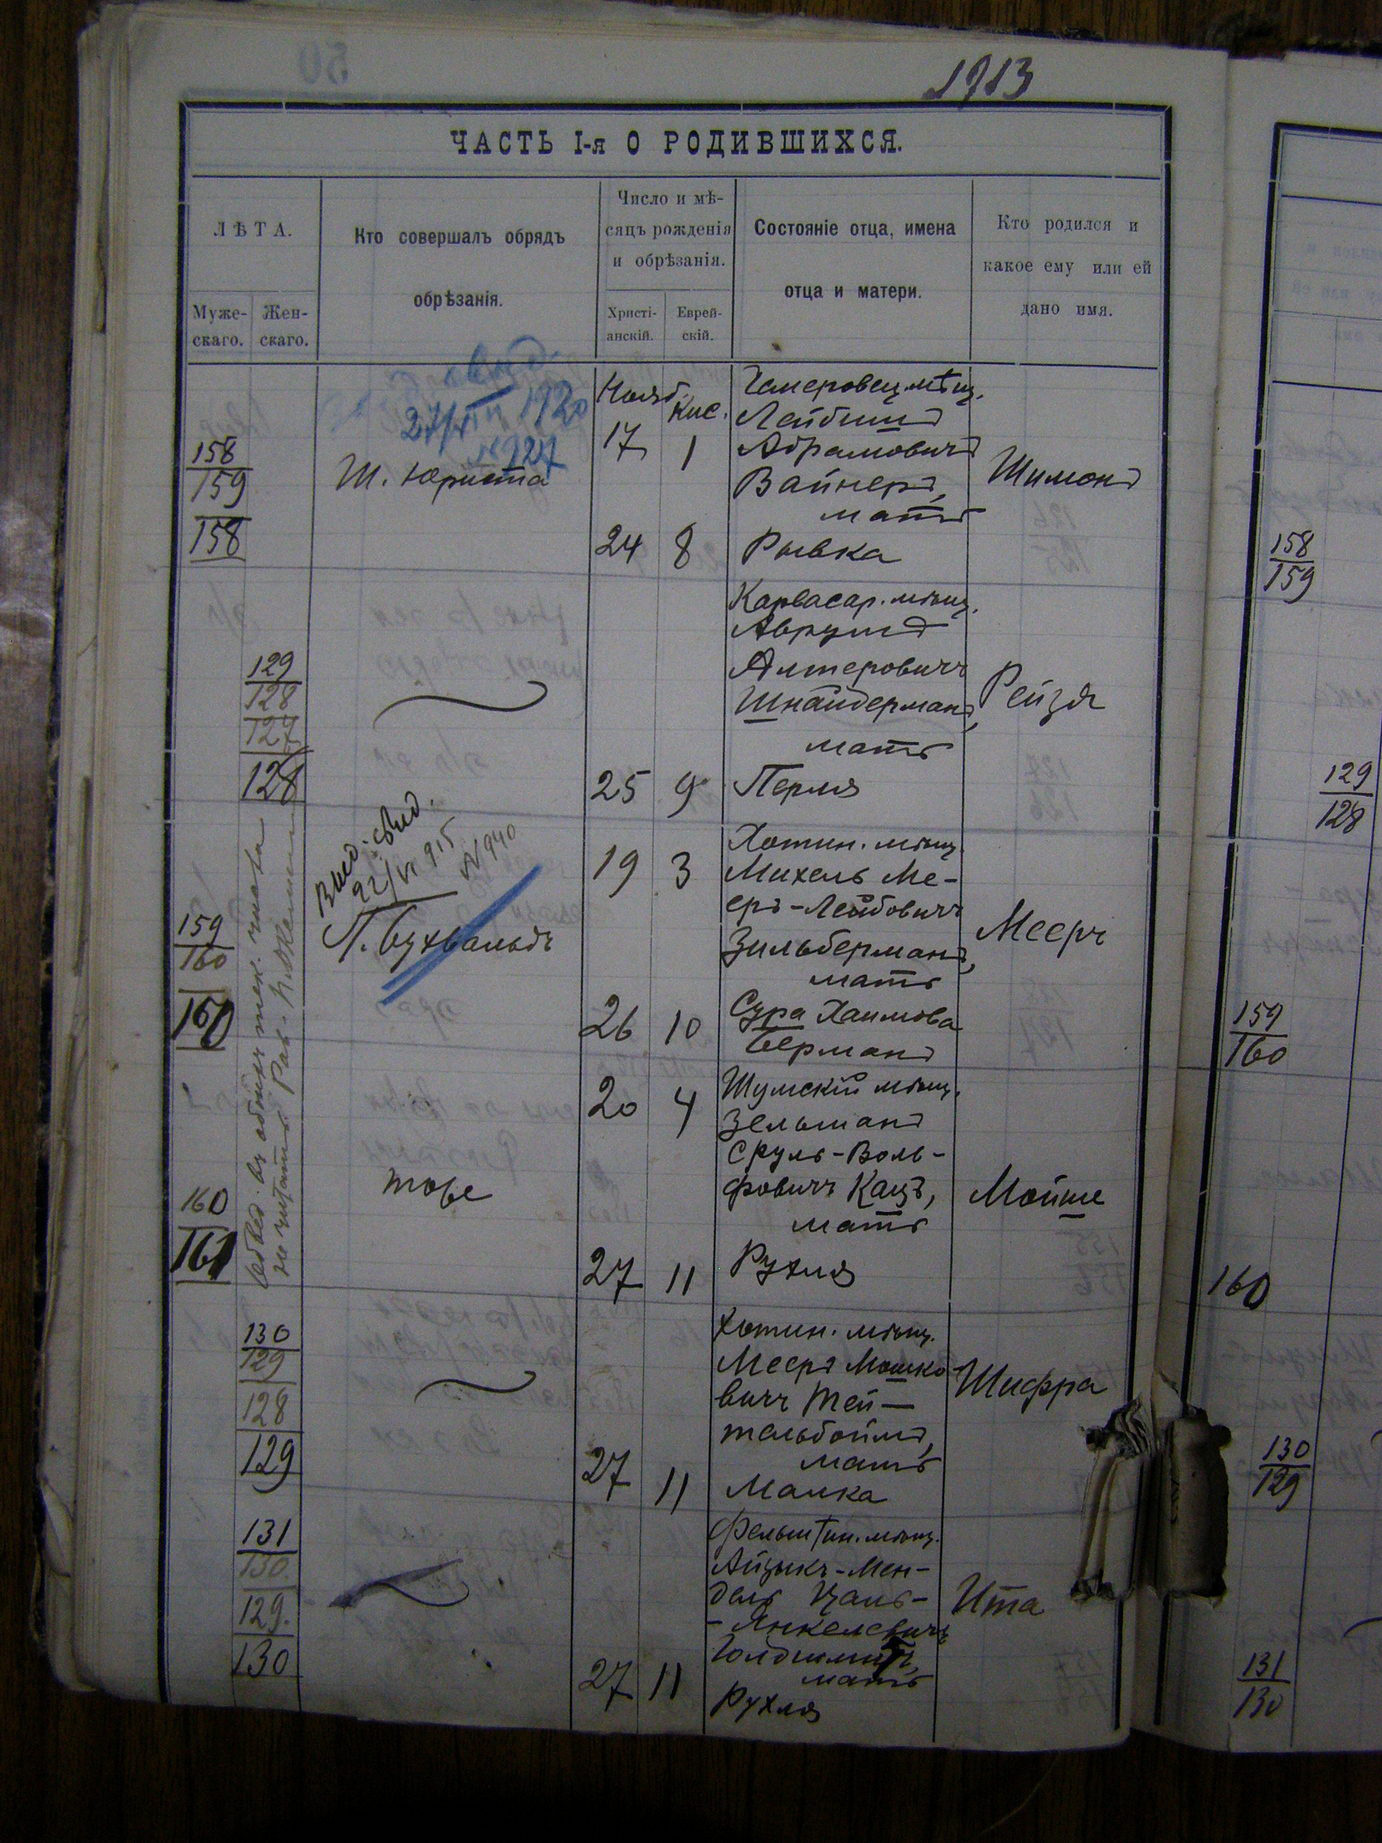 1913
ЧАСТЬ I-я О РОДИВШИХСЯ.
ЛѢТА.
Муже-
скаго.
Жен-
скаго.
Кто совершалъ обрядъ
обрѣзанія.
Число и мѣ-
сяцъ рожденія
и обрѣзанія.
Христі-
анскій.
Еврей-
скій.
Состояніе отца, имена
отца и матери.
Кто родился и
какое ему или ей
дано имя.
свид.
1920
№ 927
158
159
158
Ш. Юриста
Нояб.
Кис.
17
1
24
8
Чемеровец. мѣщ.
Лейбишъ
Абрамовичъ
Вайнеръ,
мать
Рывка
Шимонъ
129
128
127
128
25
9
Карвасар. мѣщ.
Аврумъ
Алтеровичъ
Шнайдерманъ,
мать
Перля
Рейзя
Выд. свид.
22/VI 915
N 940
159
160
160
П. Бухвальдъ
19
3
26
10
Хотин. мѣщ.
Михель Ме-
еръ-Лейбовичъ
Зильберманъ,
мать
Сура Хаимова
Берманъ
Мееръ
160
161
тоже
20
4
27
11
Шумскій мѣщ.
Зельманъ
Сруль-Воль-
фовичъ Кацъ,
мать
Рухля
Мойше
130
129
128
129
27
11
Хотин. мѣщ.
Мееръ Мошко-
вичъ Тей-
тельбоймъ,
мать
Малка
Шифра
131
130
129.
130
27
11
Фельштин. мѣщ.
Айзыкъ-Мен-
дель Цаль-
-Янкелевичъ
мать
Рухля
Ита
158
159
129
128
159
160
160
130
129
131
130